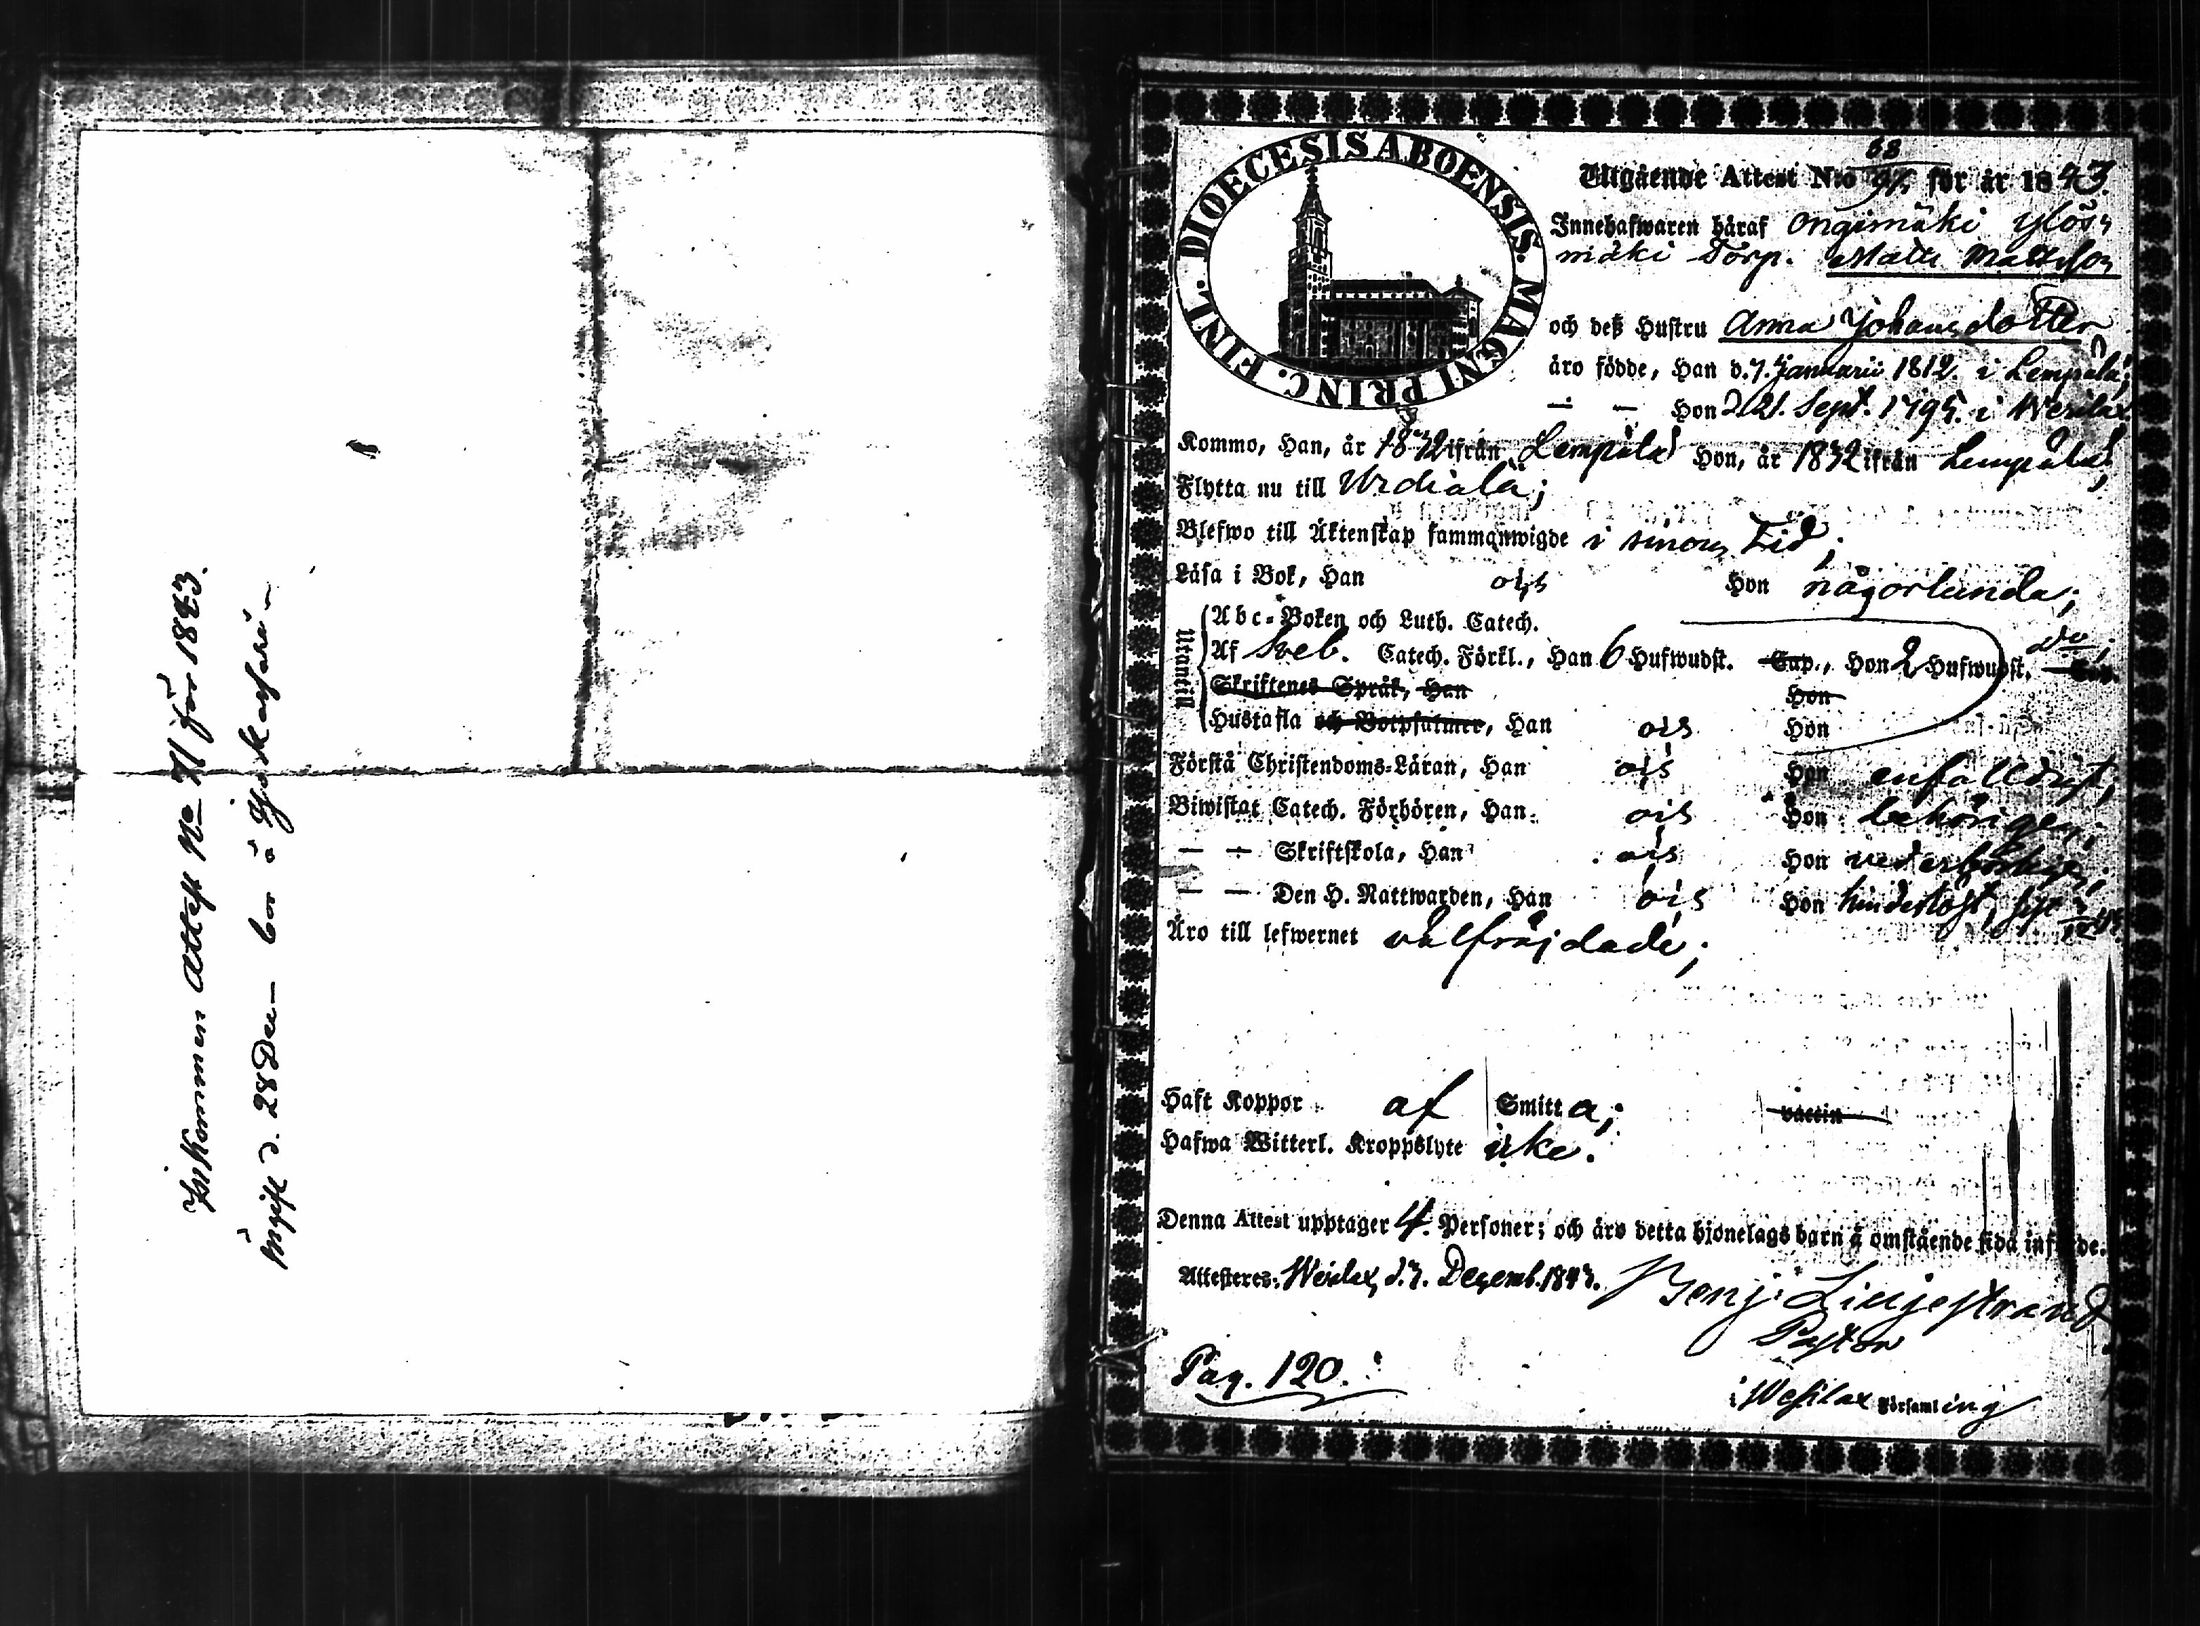 Inkommen Attest No 71 för 1843.
Ingift d. 28 Dec bor å
DIOECESIS ABOENSIS. MAGNI PRINC. FINL.
68
Utgående Attest N:o för år 1843.
Innehafwaren häraf Ongimäki Ylös-
mäki Torp. Matts Mattsson
och deß Hustru Anna Johansdotter
äro födde, Han d. 7. Januarii 1812. i Lempälä;
— — Hon d. 21. Sept. 1795. i Wesilax.
Kommo, Han, år 1832 ifrån Lempälä Hon, år 1832 ifrån Lempälä;
Flytta nu till Urdiala;
Blefwo till Äktenskap sammanwigde i sinom Tid;
Läsa i Bok, Han ois Hon någorlunda;
Utantill
Abc-Boken och Luth. Catech. do;
Af Sveb. Catech. Förkl., Han 6 Hufwudst. Cap., Hon 2 Hufwudst. Cap.
Skriftenes Språk, Han Hon
Hustafla och Botpsalmer, Han ois Hon
Förstå Christendoms-Läran, Han ois Hon enfalldigt;
Biwistat Catech. Förhören, Han ois Hon behörigen;
— — Skriftskola, Han ois Hon vederbörligen;
— — Den H. Nattwarden, Han ois Hon hinderlöst,
Äro till lefwernet välfräjdade;
Haft Koppor af Smitta; vaccin
Hafwa Witterl. Kroppslyte icke.
Denna Attest upptager 4. Personer; och äro detta hjonelags barn å omstående sida införde.
Attesteres: Wesilax, d. 7. Decemb. 1843. Benj. Liljestrand
Pastor
Pag. 120.
i Wesilax Församling